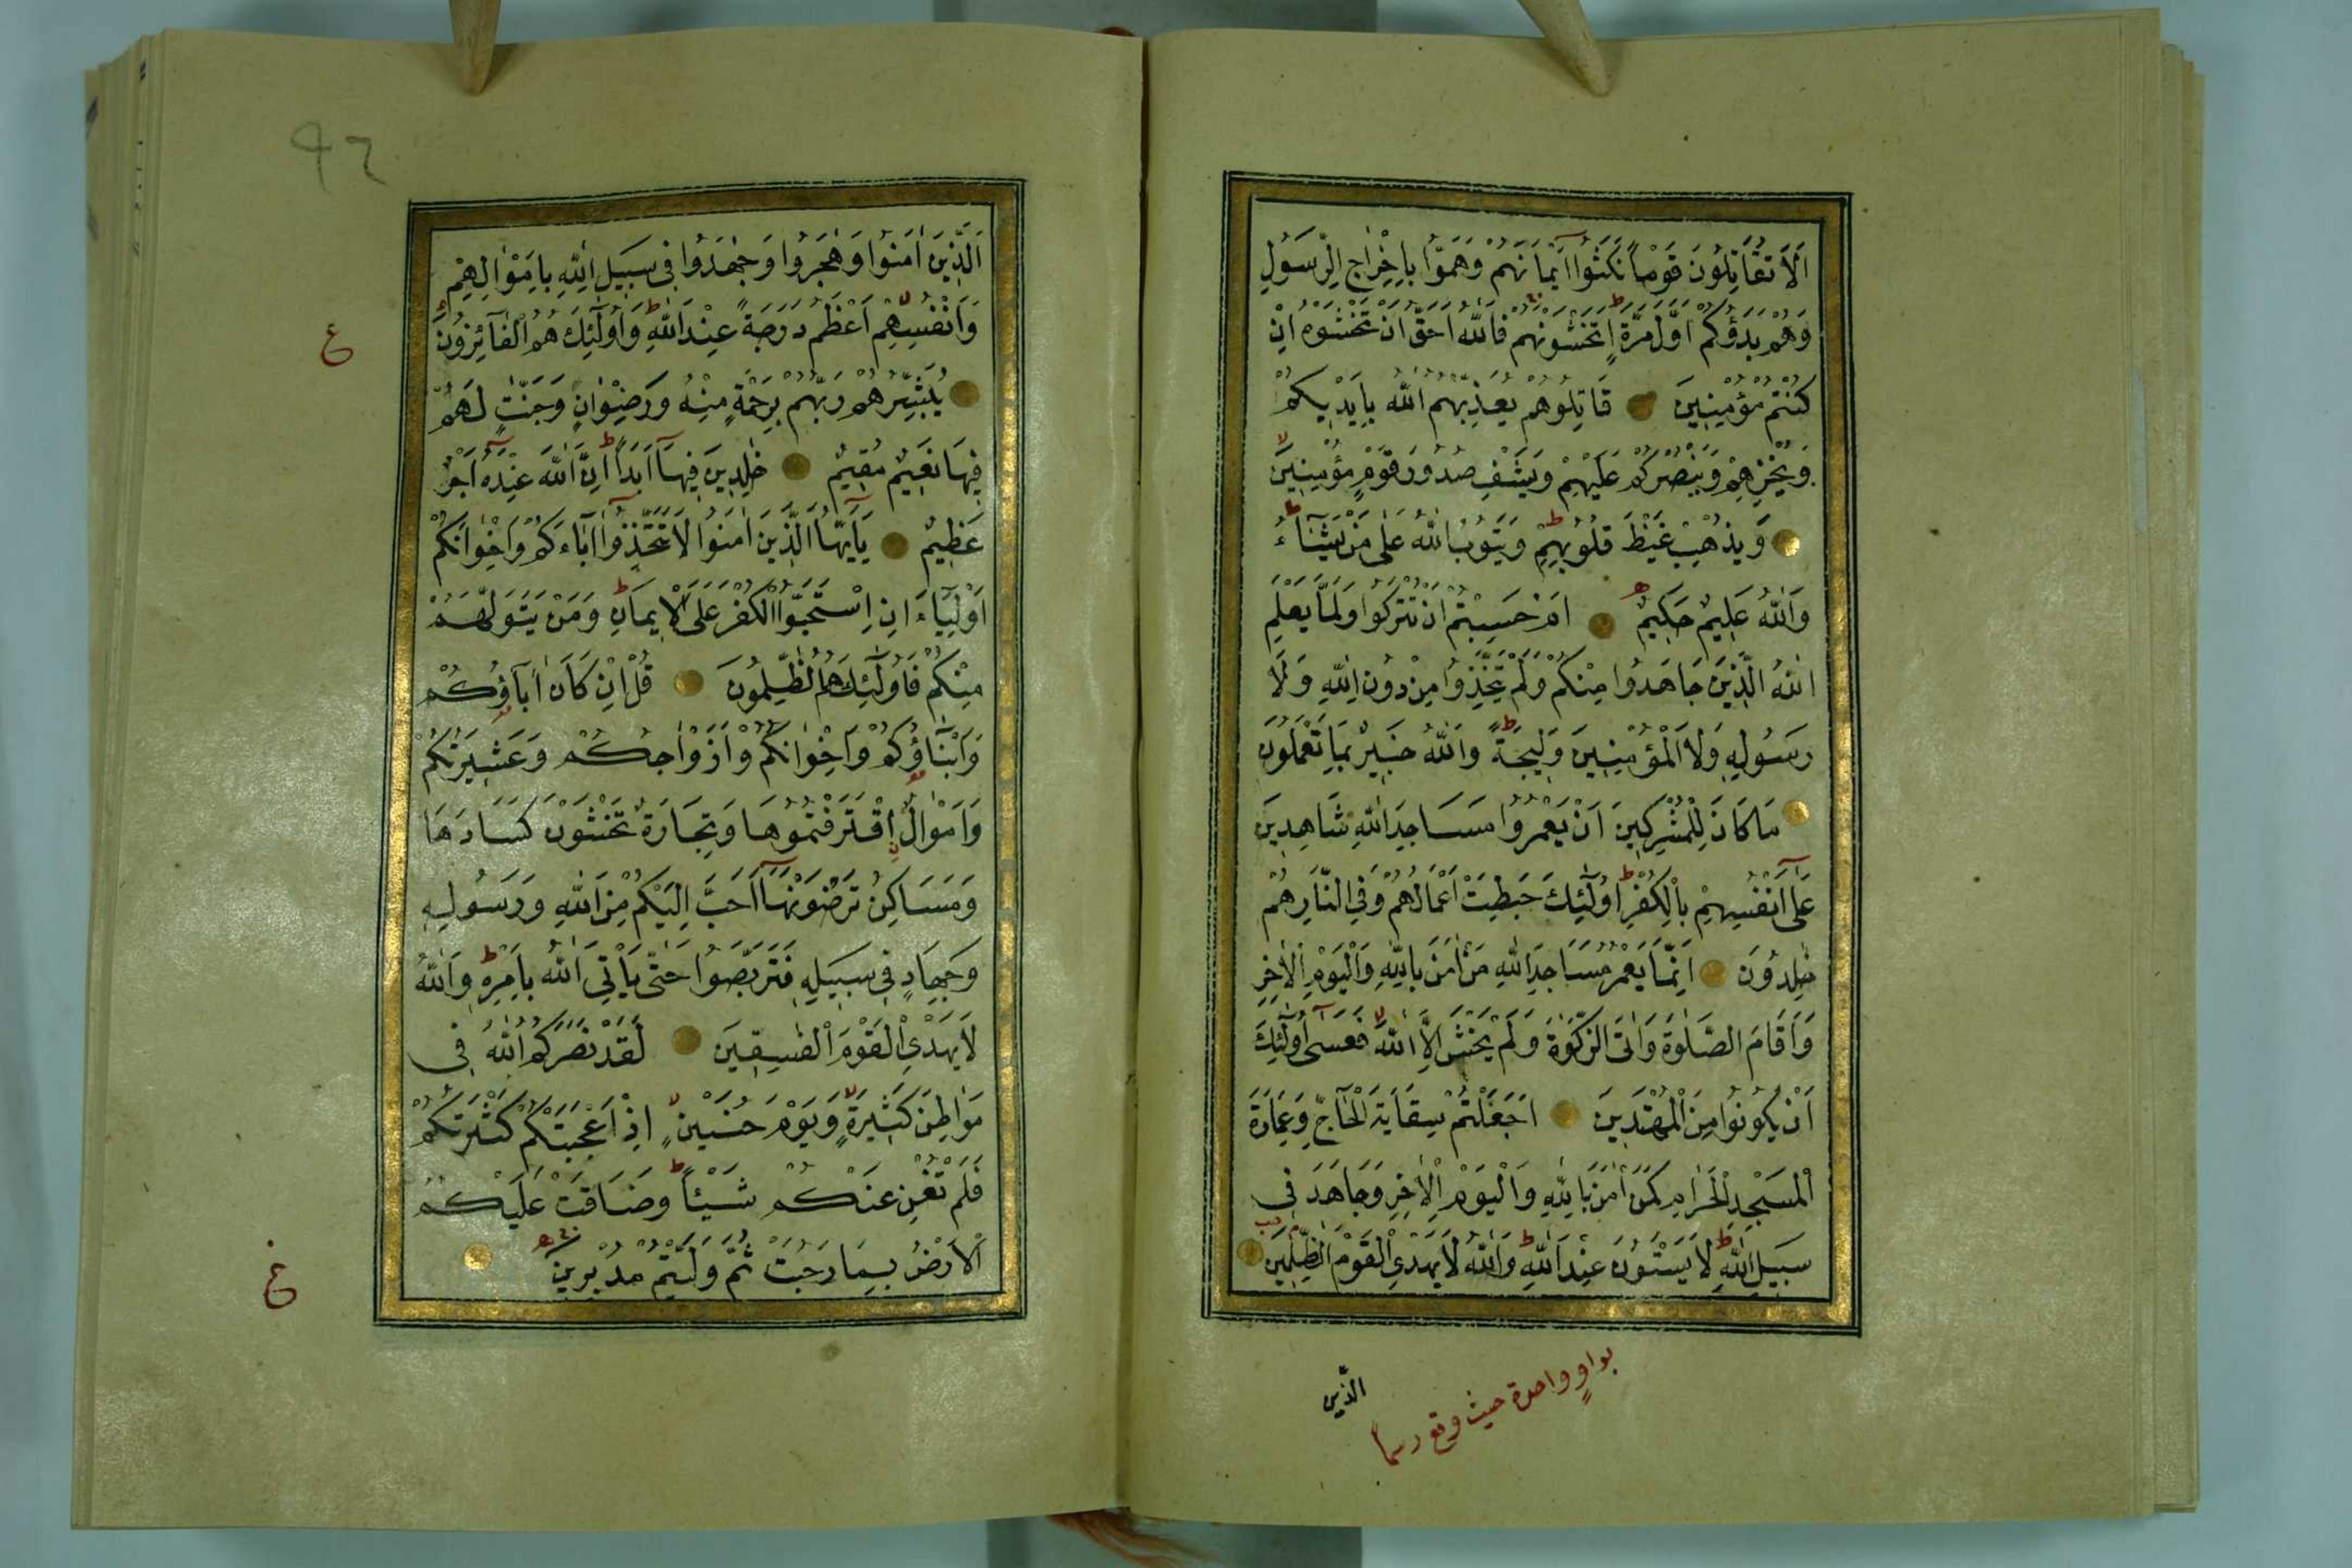 اَلَا تُقَاتِلُونَ قَوْمًا نَكَثُوا اَيْمَانَهُمْ وَهَمُّوا بِاِخْرَاجِ الرَّسُولِ
وَهُمْ بَدَؤُكُمْ اَوَّلَ مَرَّةٍ اَتَخْشَوْنَهُمْ فَاللّٰهُ اَحَقُّ اَنْ تَخْشَوْهُ اِنْ
كُنْتُمْ مُؤْمِنِينَ قَاتِلُوهُمْ يُعَذِّبْهُمُ اللّٰهُ بِاَيْدِيكُمْ
وَيُخْزِهِمْ وَيَنْصُرْكُمْ عَلَيْهِمْ وَيَشْفِ صُدُورَ قَوْمٍ مُؤْمِنِينَ
وَيُذْهِبْ غَيْظَ قُلُوبِهِمْ وَيَتُوبُ اللّٰهُ عَلٰى مَنْ يَشَٓاءُ
وَاللّٰهُ عَلِيمٌ حَكِيمٌ اَمْ حَسِبْتُمْ اَنْ تُتْرَكُوا وَلَمَّا يَعْلَمِ
اللّٰهُ الَّذِينَ جَاهَدُوا مِنْكُمْ وَلَمْ يَتَّخِذُوا مِنْ دُونِ اللّٰهِ وَلَا
رَسُولِهِ وَلَا الْمُؤْمِنِينَ وَلِيجَةً وَاللّٰهُ خَبِيرٌ بِمَا تَعْمَلُونَ
مَا كَانَ لِلْمُشْرِكِينَ اَنْ يَعْمُرُوا مَسَاجِدَ اللّٰهِ شَاهِدِينَ
عَلٰٓى اَنْفُسِهِمْ بِالْكُفْرِ اُولٰٓئِكَ حَبِطَتْ اَعْمَالُهُمْ وَفِي النَّارِ هُمْ
خٰلِدُونَ اِنَّمَا يَعْمُرُ مَسَاجِدَ اللّٰهِ مَنْ اٰمَنَ بِاللّٰهِ وَالْيَوْمِ الْاٰخِرِ
وَاَقَامَ الصَّلٰوةَ وَاٰتَى الزَّكٰوةَ وَلَمْ يَخْشَ اِلَّا اللّٰهَ فَعَسٰٓى اُولٰٓئِكَ
اَنْ يَكُونُوا مِنَ الْمُهْتَدِينَ اَجَعَلْتُمْ سِقَايَةَ الْحَٓاجِّ وَعِمَارَةَ
الْمَسْجِدِ الْحَرَامِ كَمَنْ اٰمَنَ بِاللّٰهِ وَالْيَوْمِ الْاٰخِرِ وَجَاهَدَ فِي
سَبِيلِ اللّٰهِ لَا يَسْتَوُنَ عِنْدَ اللّٰهِ وَاللّٰهُ لَا يَهْدِي الْقَوْمَ الظّٰلِمِينَ
الَّذِينَ
بواوٍ واحدة حيث وقع رسماً
٩٢
اَلَّذِينَ اٰمَنُوا وَهَاجَرُوا وَجٰهَدُوا فِي سَبِيلِ اللّٰهِ بِاَمْوَالِهِمْ
وَاَنْفُسِهِمْ اَعْظَمُ دَرَجَةً عِنْدَ اللّٰهِ وَاُولٰٓئِكَ هُمُ الْفَٓائِزُونَ
ع
يُبَشِّرُهُمْ رَبُّهُمْ بِرَحْمَةٍ مِنْهُ وَرِضْوَانٍ وَجَنَّاتٍ لَهُمْ
فِيهَا نَعِيمٌ مُقِيمٌ خٰلِدِينَ فِيهَٓا اَبَدًا اِنَّ اللّٰهَ عِنْدَهُ اَجْرٌ
عَظِيمٌ يَٓا اَيُّهَا الَّذِينَ اٰمَنُوا لَا تَتَّخِذُٓوا اٰبَٓاءَكُمْ وَاِخْوَانَكُمْ
اَوْلِيَٓاءَ اِنِ اسْتَحَبُّوا الْكُفْرَ عَلَى الْاِيمَانِ وَمَنْ يَتَوَلَّهُمْ
مِنْكُمْ فَاُولٰٓئِكَ هُمُ الظّٰلِمُونَ قُلْ اِنْ كَانَ اٰبَٓاؤُكُمْ
وَاَبْنَٓاؤُكُمْ وَاِخْوَانُكُمْ وَاَزْوَاجُكُمْ وَعَشِيرَتُكُمْ
وَاَمْوَالٌ اقْتَرَفْتُمُوهَا وَتِجَارَةٌ تَخْشَوْنَ كَسَادَهَا
وَمَسَاكِنُ تَرْضَوْنَهَٓا اَحَبَّ اِلَيْكُمْ مِنَ اللّٰهِ وَرَسُولِهِ
وَجِهَادٍ فِي سَبِيلِهِ فَتَرَبَّصُوا حَتّٰى يَاْتِيَ اللّٰهُ بِاَمْرِهِ وَاللّٰهُ
لَا يَهْدِي الْقَوْمَ الْفٰسِقِينَ لَقَدْ نَصَرَكُمُ اللّٰهُ فِي
مَوَاطِنَ كَثِيرَةٍ وَيَوْمَ حُنَيْنٍ اِذْ اَعْجَبَتْكُمْ كَثْرَتُكُمْ
فَلَمْ تُغْنِ عَنْكُمْ شَيْئًا وَضَاقَتْ عَلَيْكُمُ
الْاَرْضُ بِمَا رَحُبَتْ ثُمَّ وَلَّيْتُمْ مُدْبِرِينَ